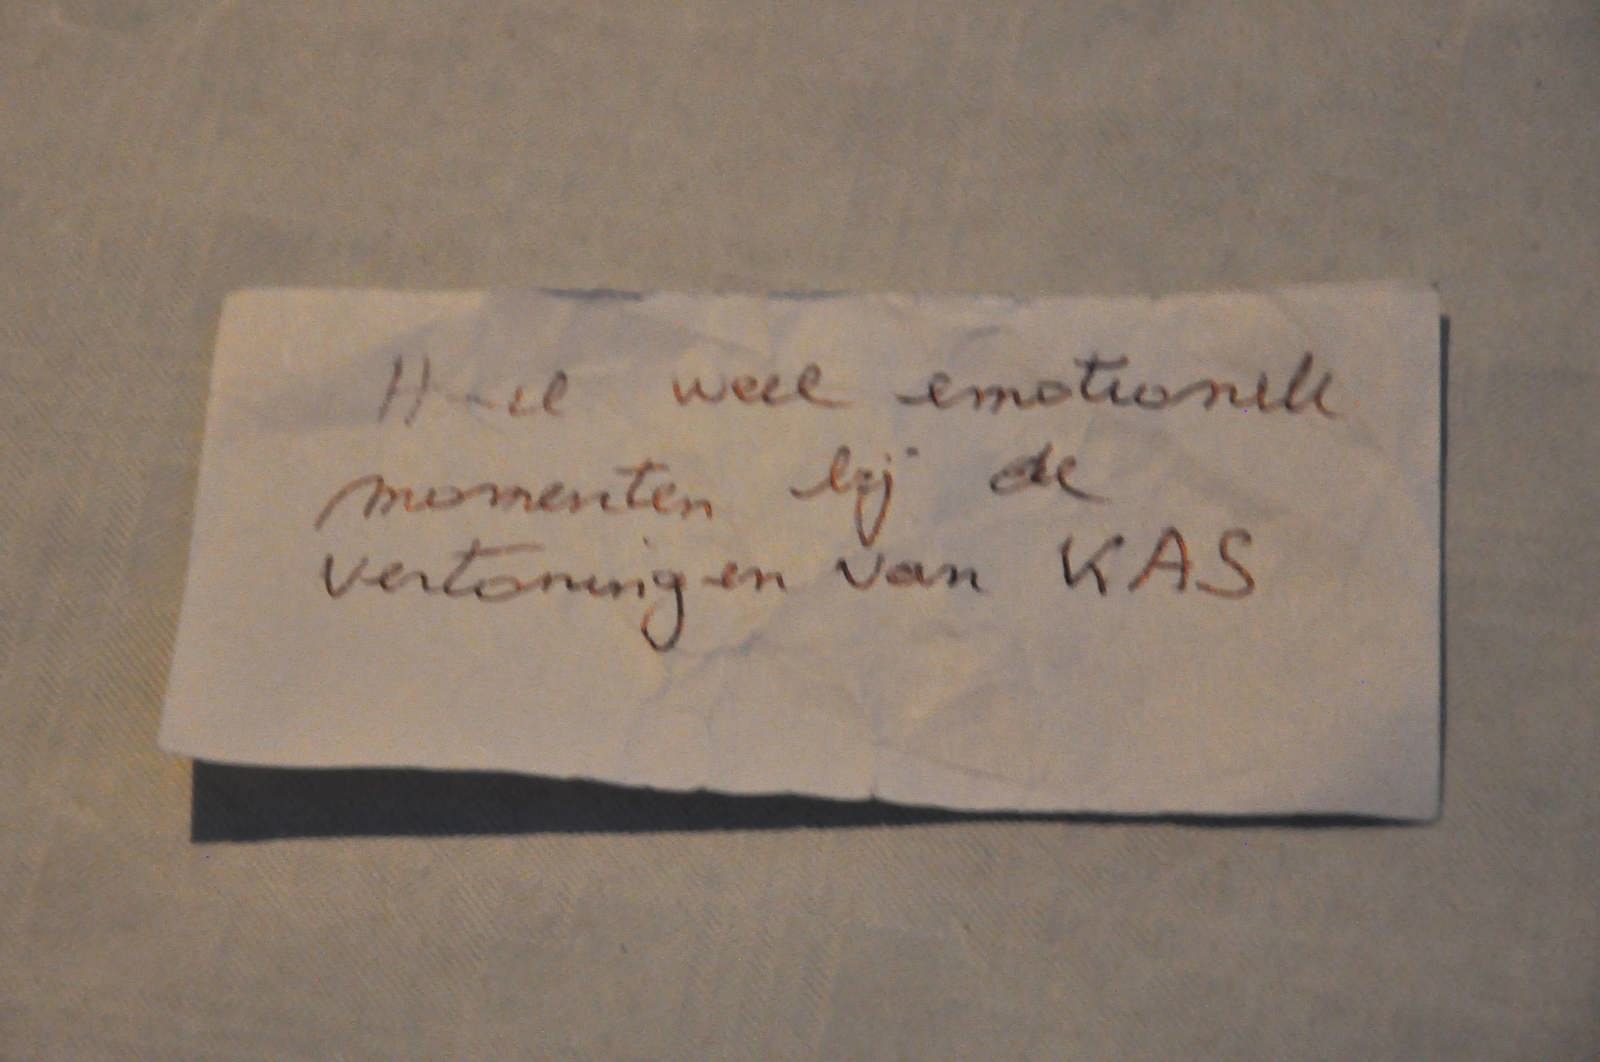 Heel weel emotionele
momenten bij de
vertoningen van KAS